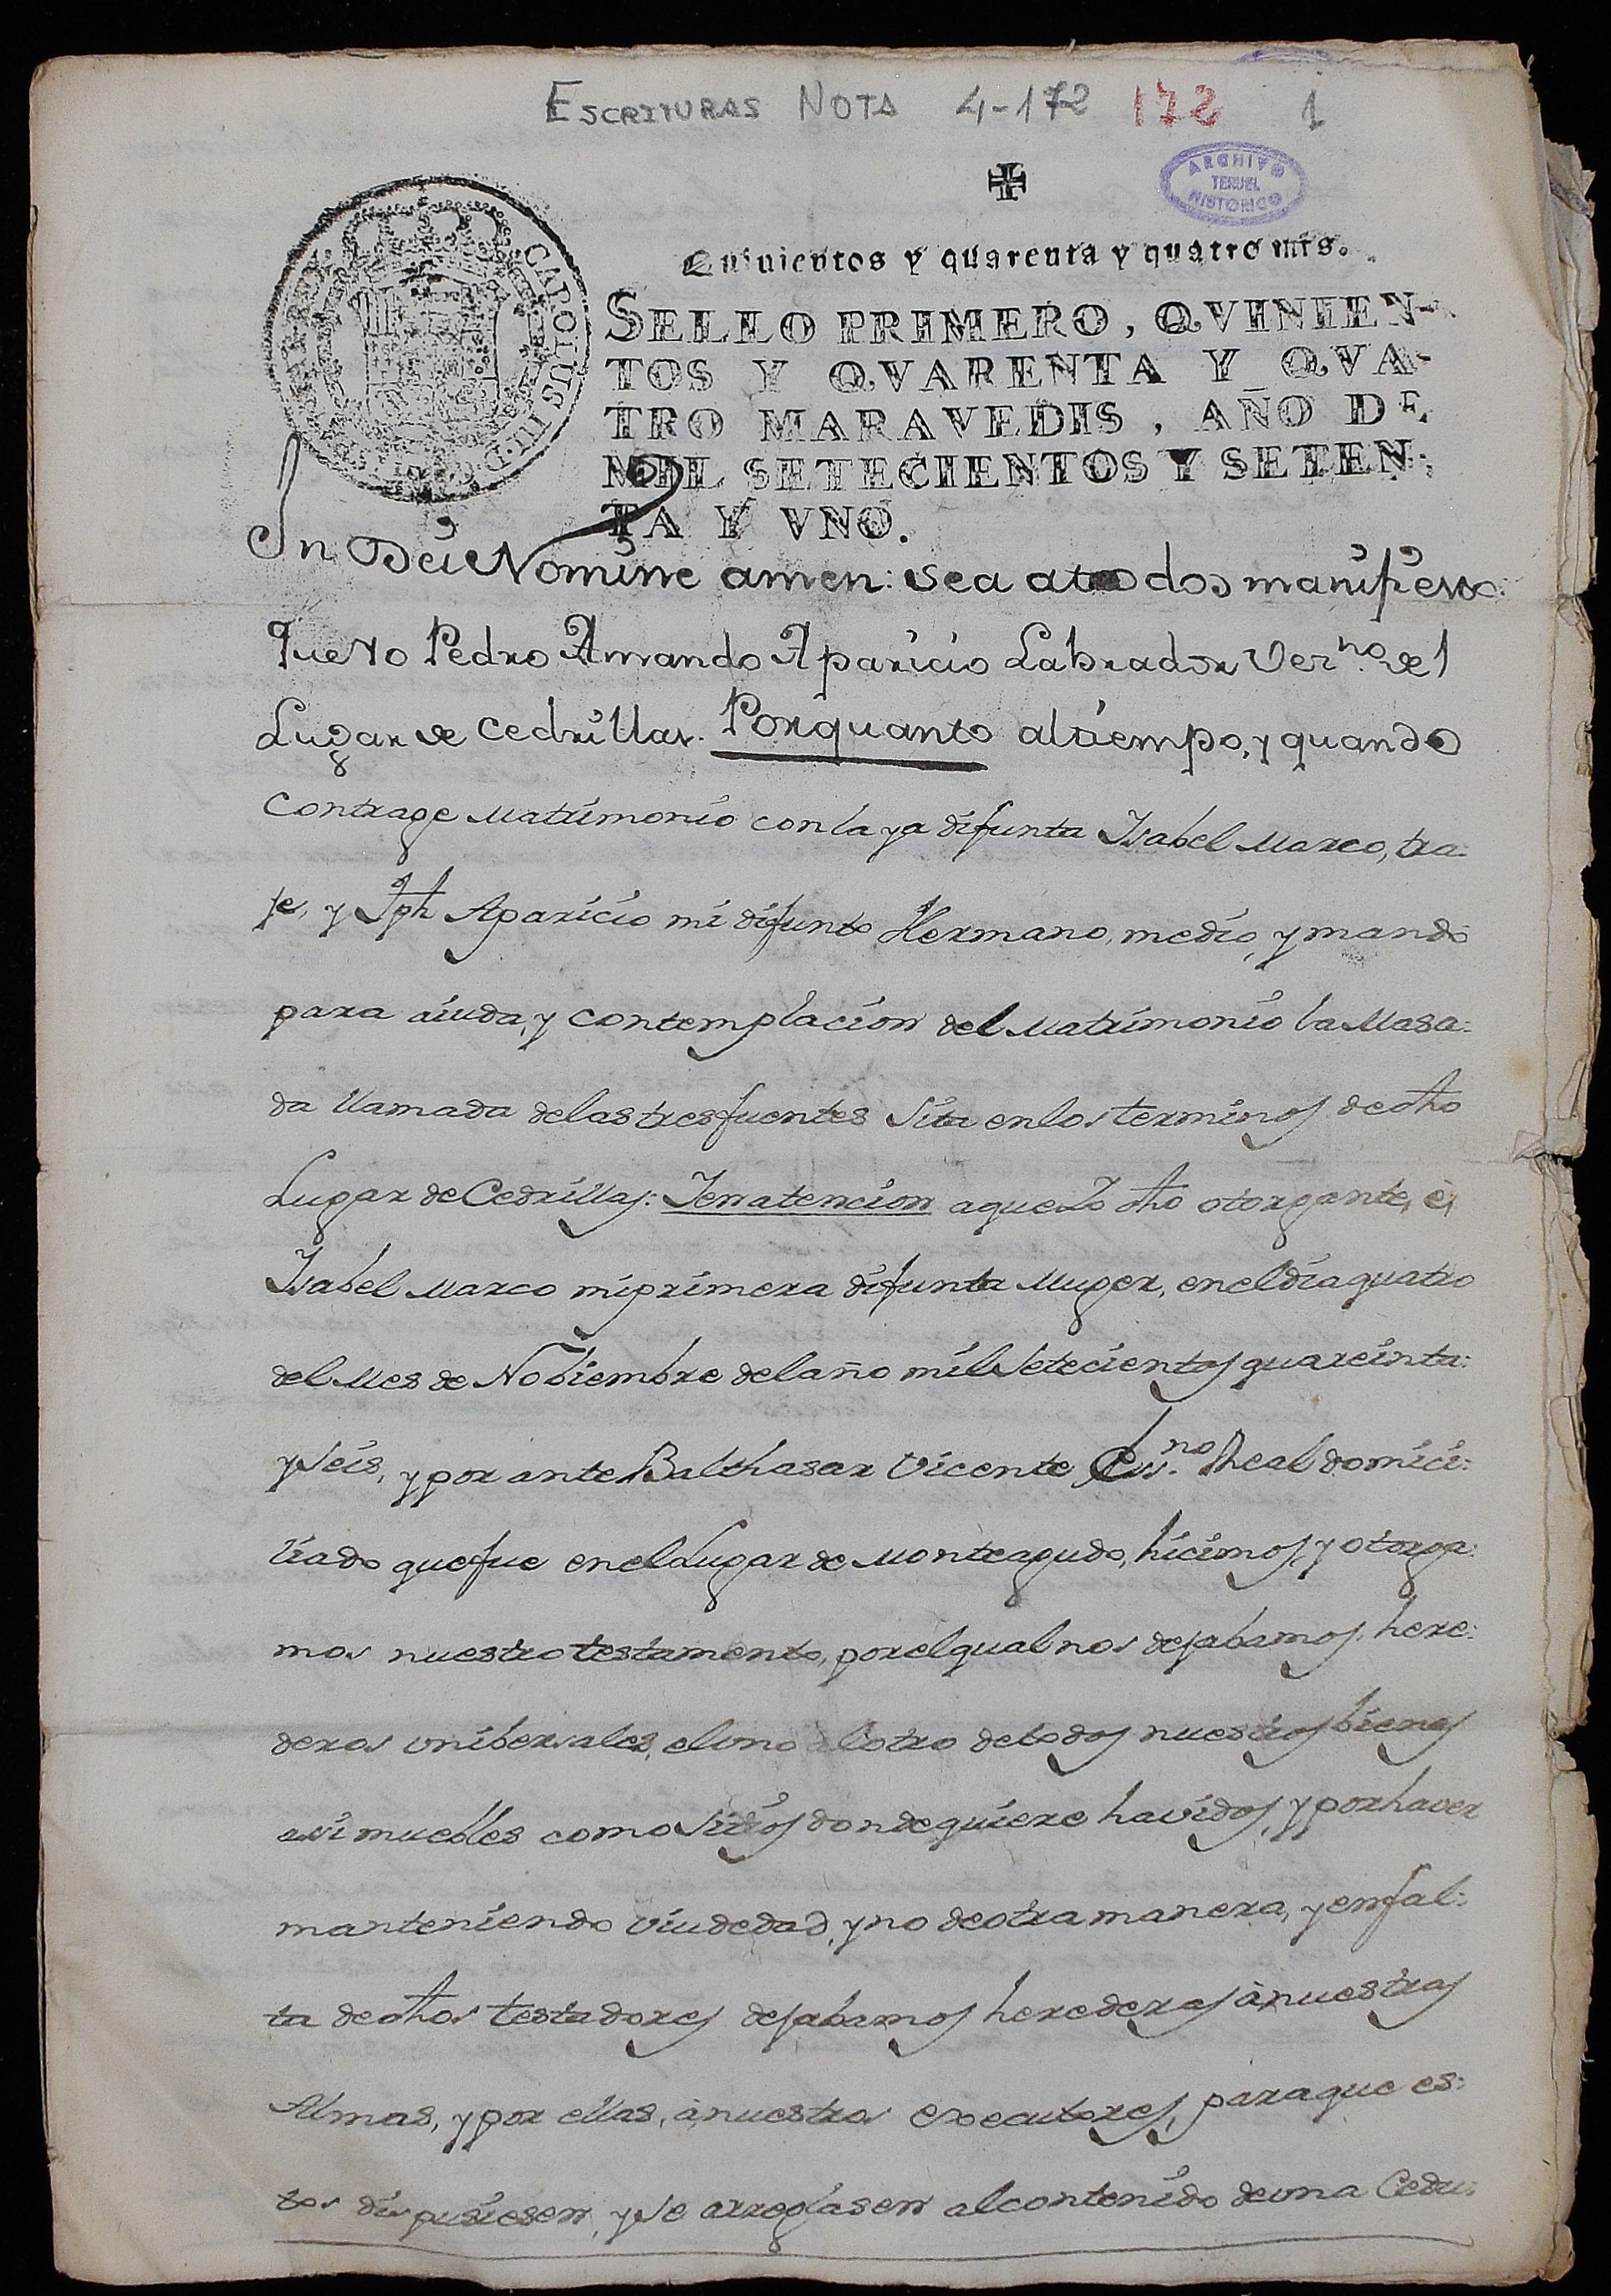 ESCRITURAS NOTA 4-172 172 1
ARCHIVO
TERUEL
HISTORICO
CAROLUS III D G
Quinientos y quarenta y quatro mrs.
SELLO PRIMERO, QVINIEN-
TOS Y QVARENTA Y QVA-
TRO MARAVEDIS, AÑO DE
MIL SETECIENTOS Y SETEN-
TA Y VNO.
In Dei Nomine amen: sea atodos manifiesto:
Que Yo Pedro Amando Aparicio Labrador Vez.no del
Lugar de Cedrillas. Porquanto altiempo, y quando
Contrage Matrimonio conla ya difunta Isabel Marco, tra:
je, y Jph Aparicio mi difunto Hermano, medio, y mando
para aiuda, y contemplacion del Matrimonio la Masa:
da llamada delas tres fuentes sita enlos terminos de dho
Lugar de Cedrillas: Yenatencion aque Yo dho otorgante, è,
Isabel Marco miprimera difunta Muger, eneldia quatro
del Mes de Nobiembre delaño mil setecientos quareinta:
y seis, y por ante Balthasar Vicente Ess.no Real domici:
liado quefue enel Lugar de Monteagudo, hicimos, y otorga:
mos nuestro testamento, porelqual nos dejabamos here:
deros unibersales, eluno al otro detodos nuestros bienes
assi muebles como sitios dondequiere havidos, y por haver
manteniendo viudedad, y no deotra manera, y enfal:
ta de dhos testadores dejabamos herederas à nuestras
Almas, y por ellas, à nuestros executores, paraque es:
tos dispusiesen, y se arreglasen al contenido de una Cedu: